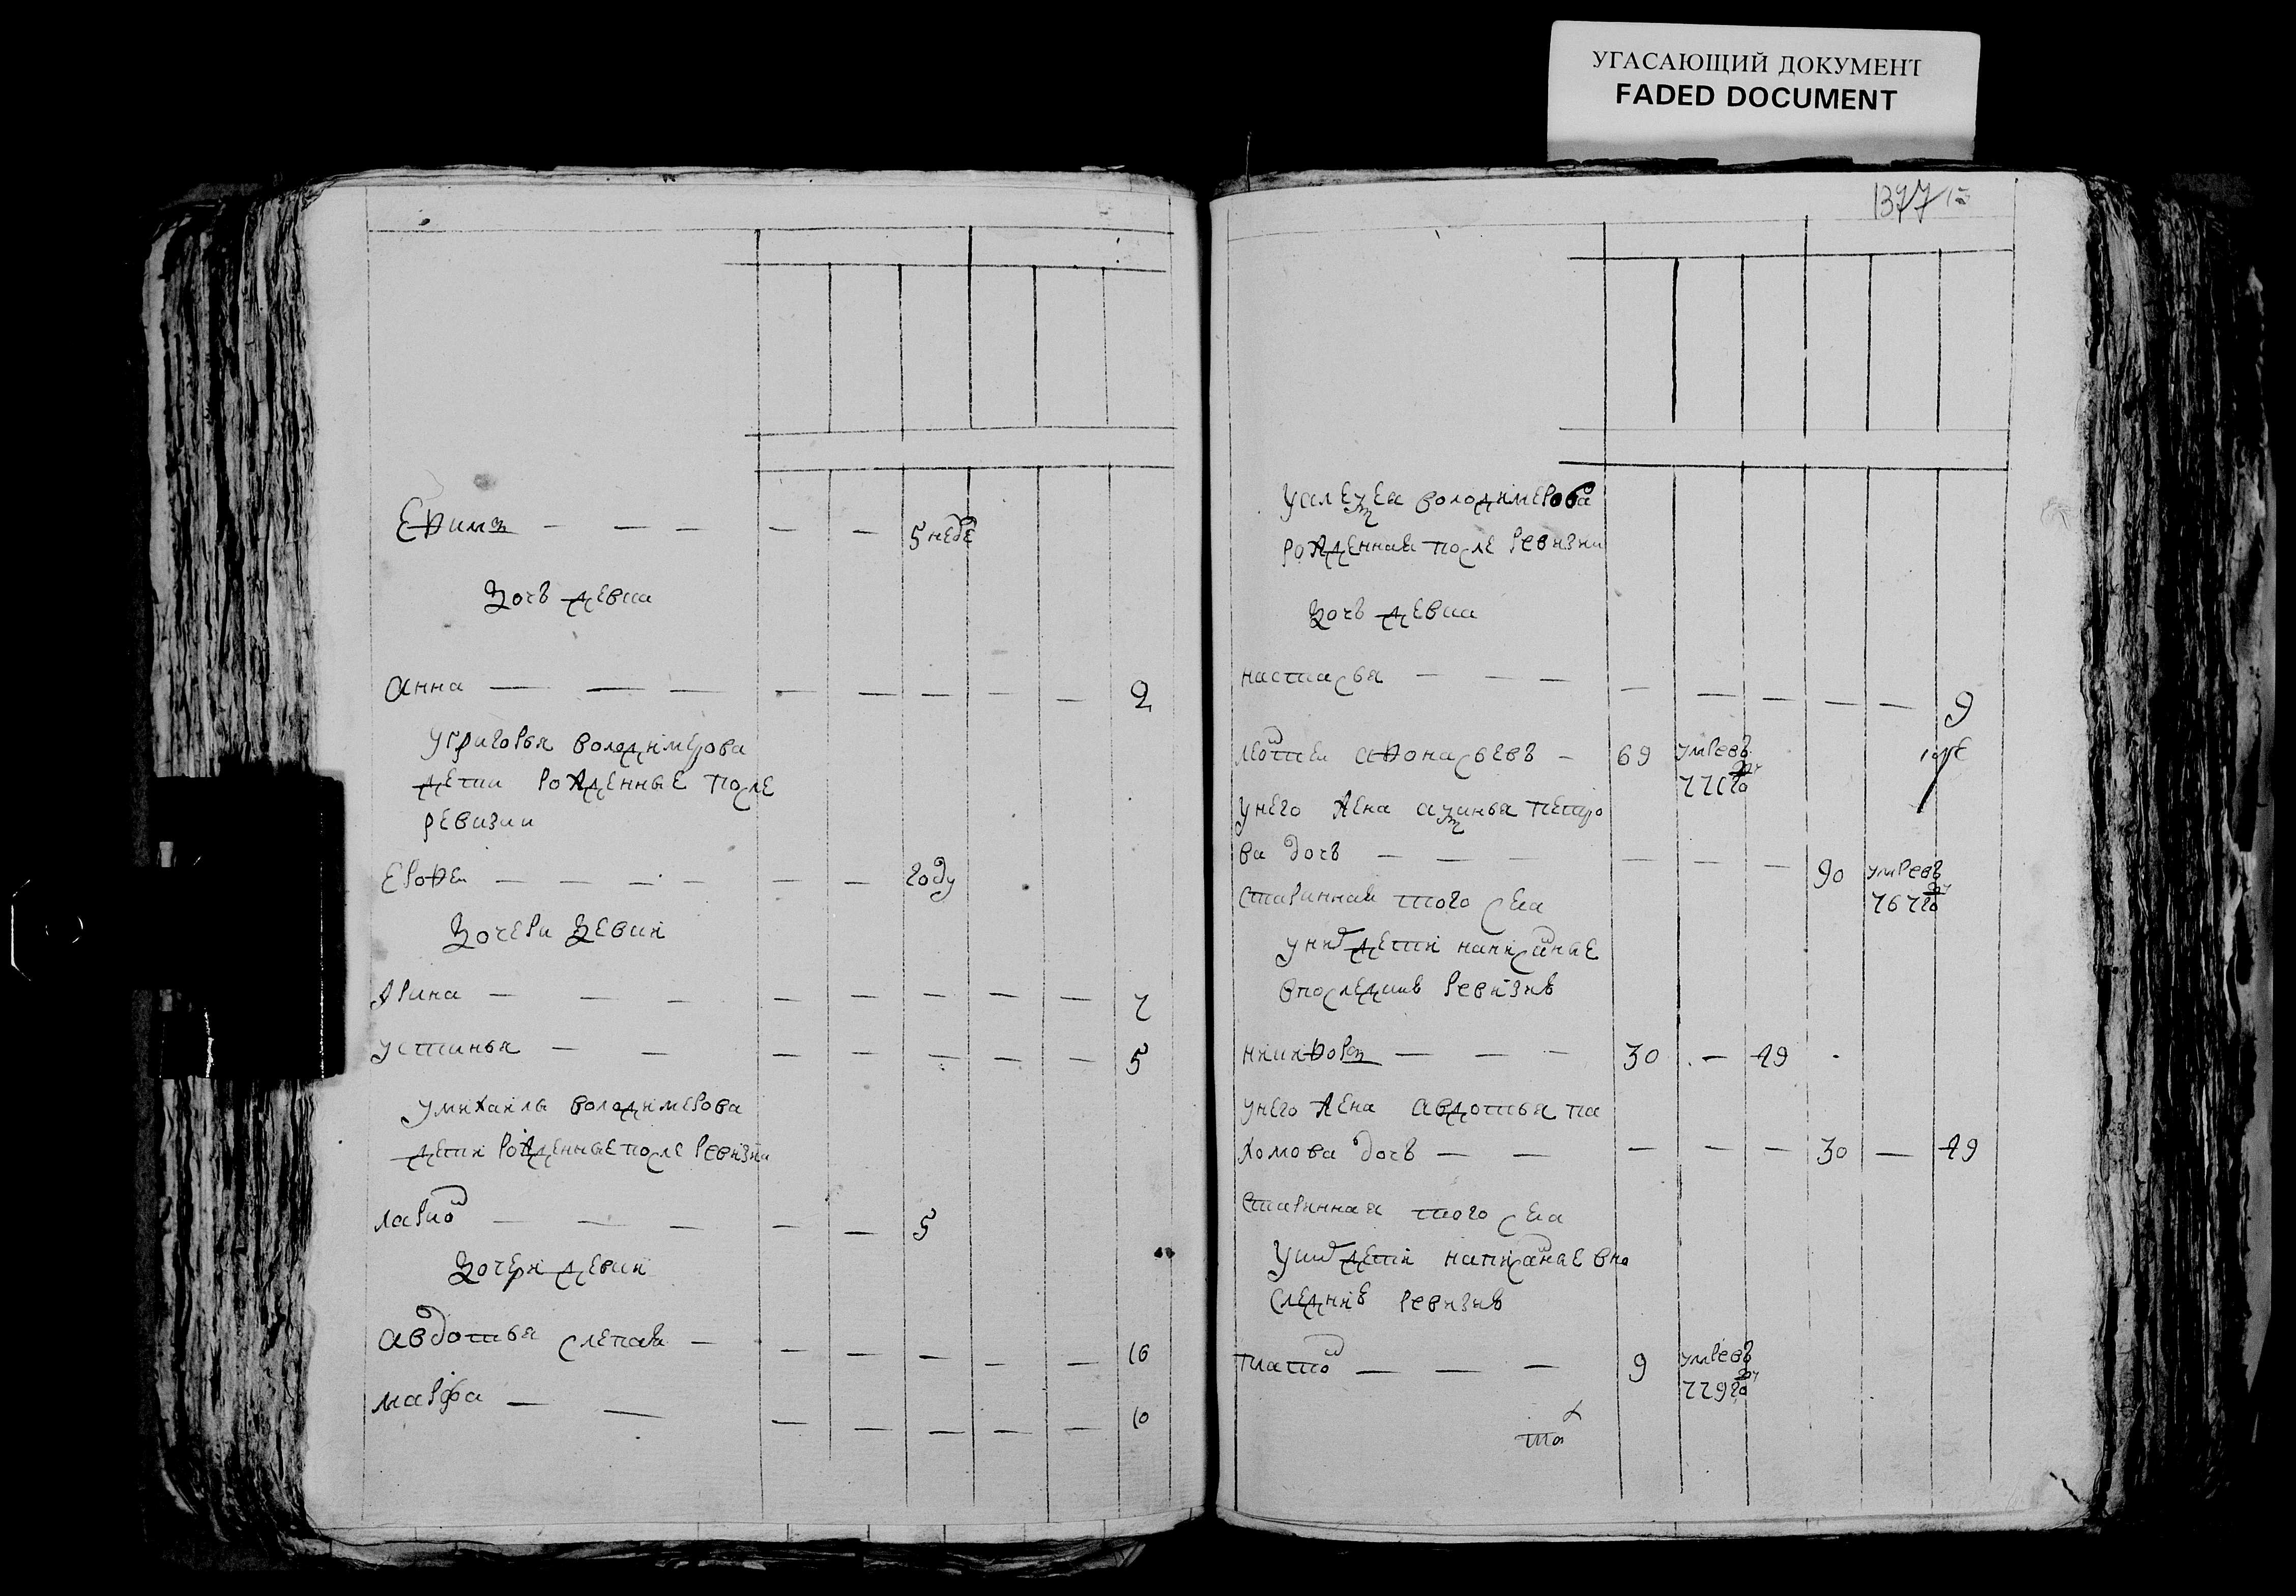 УГАСАЮЩИЙ ДОКУМЕНТ
FADED DOCUMENT
Ефимъ — — — — — 5 неде
дочь девка
анна — — — — — — — — 2
угригорья володимерова
дети рожденные после
ревизии
Ерофеи — — — — — — году
дочери девки
Арина — — — — — — — — — 7
устинья — — — — — — — — 5
умихаила володимерова
дети рожденные после ревизии
лариѡ — — — — — 5
дочери девки
авдотья слепая — — — — — — 16
марфа — — — — — — — 10
1377
уалезея володимерова
рожденная после ревизии
дочь девка
настасья — — — — — — — — 9
афонасьевъ — 69 умре въ
унего жена петро
ва дочь — — — — — — 90 умре въ
767 го
старинная того села
уних дети написаные
впоследнеи ревизиі
никифоръ — — — 30 — 49
унего жена авдотья па
хомова дочь — — — — — 30 — 49
старинная того села
уних дети написаные впо
следнеи ревизиі
платѡ — — — 9 умре въ
779 го